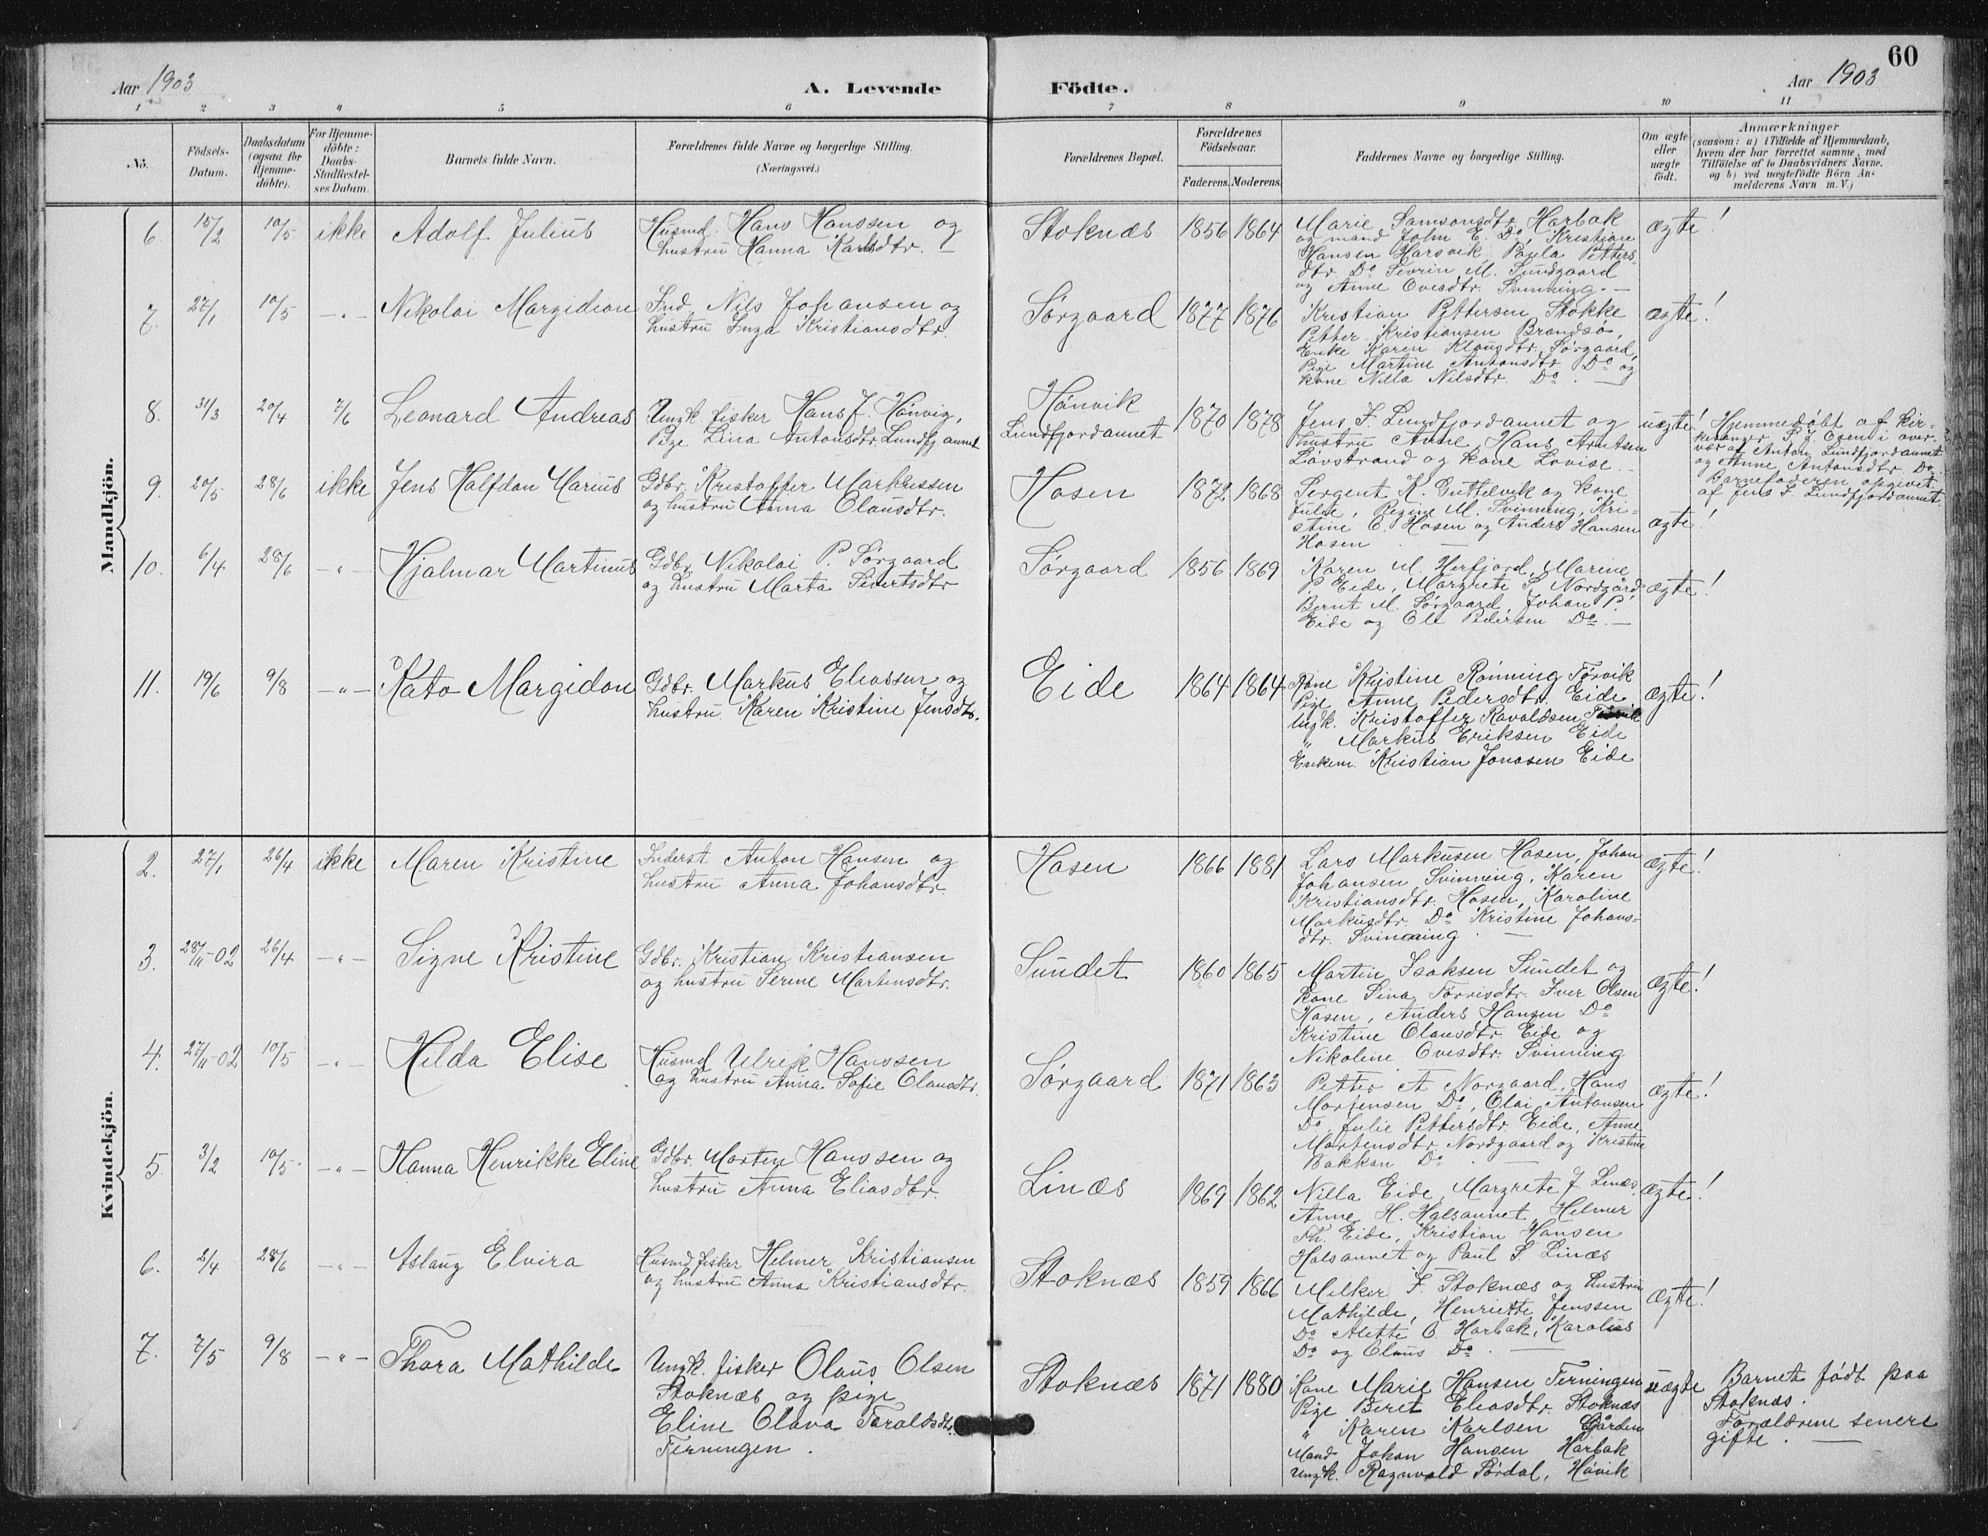 60
Aar 1903
A. Levende
Födte.
Aar 1903
1 2 3 4 5 6 7 8 9 10 11
No.
Födsels-
Datum.
Daabsdatum
(ogsaa for
Hjemme-
döbte).
For Hjemme-
döbte:
Daabs-
Stadfestel-
ses Datum.
Barnets fulde Navn.
Forældrenes fulde Navne og borgerlige Stilling.
(Næringsvei.)
Forældrenes Bopæl.
Forældrenes
Födselsaar.
Faderens. Moderens.
Faddernes Navne og borgerlige Stilling.
Om ægte
eller
uægte
födt.
Anmærkninger
(saasom: a) i Tilfælde af Hjemmedaab,
hvem der har forrettet samme, med
Tilföielse af to Daabsvidners Navne,
og b) ved uægtefödte Börn An-
melderens Navn m. V.)
Mandkjön.
6. 15/2 10/5 ikke Adolf Julius
Husmd. Hans Hanssen og
hustru Hanna Karlsdtr. —
Stoknæs 1856 1864
Marie Samsonsdtr. Harbak
og mand John E. Do, Kristian
Hansen Harsvik, Paula Petters-
dtr. Do Sevrin M. Sundgaard
og Anne Ovesdtr. Svinning. —
ægte!
7. 27/1 10/5 —"— Nikolai Margidion
Ind. Nils Johansen og
hustru Inga Kristiansdtr.
Sørgaard 1877 1876
Kristian Pettersen Stokke
Petter Kristiansen Brandsø,
Enke Karen Klausdtr. Sørgaard,
Pige Martine Antonsdtr. Do og
kone Nilla Nilsdtr. Do. —
ægte!
8. 31/3 20/4 7/6 Leonard Andreas
Ungk. fisker Hans J. Hønvig,
Pige Lina Antonsdtr. Lundfj. annet
Hønvik
Lundfjordannet
1870 1878
Jens F. Lundfjordannet og
hustru Anne, Hans Arntsen
Løvstrand og kone Lovise. —
uægte!
Hjemmedøbt af kir-
kesanger P. J. Osen i over-
vær af Anton Lundfjordannet
og Anne Antonsdtr. Do
Barnefaderen opgivet
af Jens F. Lundfjordannet.
9. 20/5 28/6 ikke Jens Halfdan Marius
Gdbr. Kristoffer Markussen
og hustru Anna Olausdtr.
Hosen 1872 1868
Sergent K. Guttelvik og kone
Julie, Regine M. Svinning, Kri-
stine C. Hosen og Anders Hansen
Hosen —
ægte!
10. 6/4 28/6 —"— Hjalmar Martinus
Gdbr. Nikolai P. Sørgaard
og hustru Marta Sivertsdtr
Sørgaard 1856 1869
Karen M. Herfjord, Marine
P. Eide, Margrete S. Nordgård
Bernt M. Sørgaard, Johan P.
Eide og Ole Pedersen Do. —
ægte!
11. 19/6 9/8 —"— Kato Margidon
Gdbr. Markus Eliassen og
hustru Karen Kristine Jensdtr.
Eide 1864 1864
Kone Kristine Rønning Førvik
Pige Anne Pedersdtr. Eide
Ungk. Kristoffer Ravaldsen
" Markus Eriksen Eide
Enkem. Kristian Jonasen Eide
ægte!
Kvindekjön.
2. 27/1 26/4 ikke Maren Kristine
Inderst Anton Hansen og
hustru Anna Johansdtr.
Hosen 1866 1881
Lars Markusen Hosen, Johan
Johansen Svinning, Karen
Kristiansdtr. Hosen, Karoline
Markusdtr. Do Kristine Johans-
dtr. Svinning. —
ægte!
3. 28/11-02 26/4 —"— Signe Kristine
Gdbr. Kristian Kristiansen
og hustru Serine Martinsdtr.
Sundet 1860 1865
Martin Isaksen Sundet og
kone Sina Torrisdtr. Iver Olsen
Hosen, Anders Hansen Do
Kristine Olausdtr. Eide og
Nikoline Ovesdtr. Svinning
ægte!
4. 27/11-02 10/5 —"— Hilda Elise
Husmd Ulrik Hanssen
og hustru Anna Sofie Olausdtr.
Sørgaard 1871 1863
Petter A. Norgaard, Hans
Mortensen Do, Olai Antonsen
Do, Julie Pettersdtr. Eide, Anne
Martensdtr. Nordgaard og Kristine
Bakken Do. —
ægte!
5. 3/2 10/5 —"— Hanna Henrikke Eline
Gdbr. Morten Hanssen og
hustru Anna Eliasdtr.
Linæs 1869 1862
Nilla Eide, Margrete J. Linæs,
Anne H. Halsannet, Helmer
Th. Eide, Kristian Hansen
Halsannet og Paul S. Linæs
ægte!
6. 2/4 28/6 —"— Aslaug Elvira
Husmd fisker Helmer Kristiansen
og hustru Anna Kristiansdtr.
Stoknæs 1859 1866
Melker F. Stoknæs og hustru
Mathilde, Henriette Jenssen
Do Alette O. Harbak, Karolius
Do og Olaus Do. —
ægte!
7. 7/5 9/8 —"— Thora Mathilde
Ungk. fisker Olaus Olsen
Stoknæs og pige
Eline Olava Toraldsdtr.
Terningen.
Stoknæs 1871 1880
Kone Marie Hansen Terningen
Pige Beret Eliasdtr. Stoknæs
" Karen Karlsen Gården
Mand Johan Hansen Harbak
Ungk. Ragnvald Sørdal, Håvik
uægte
Barnet født paa
Stoknæs.
Forældrene senere
gifte. —